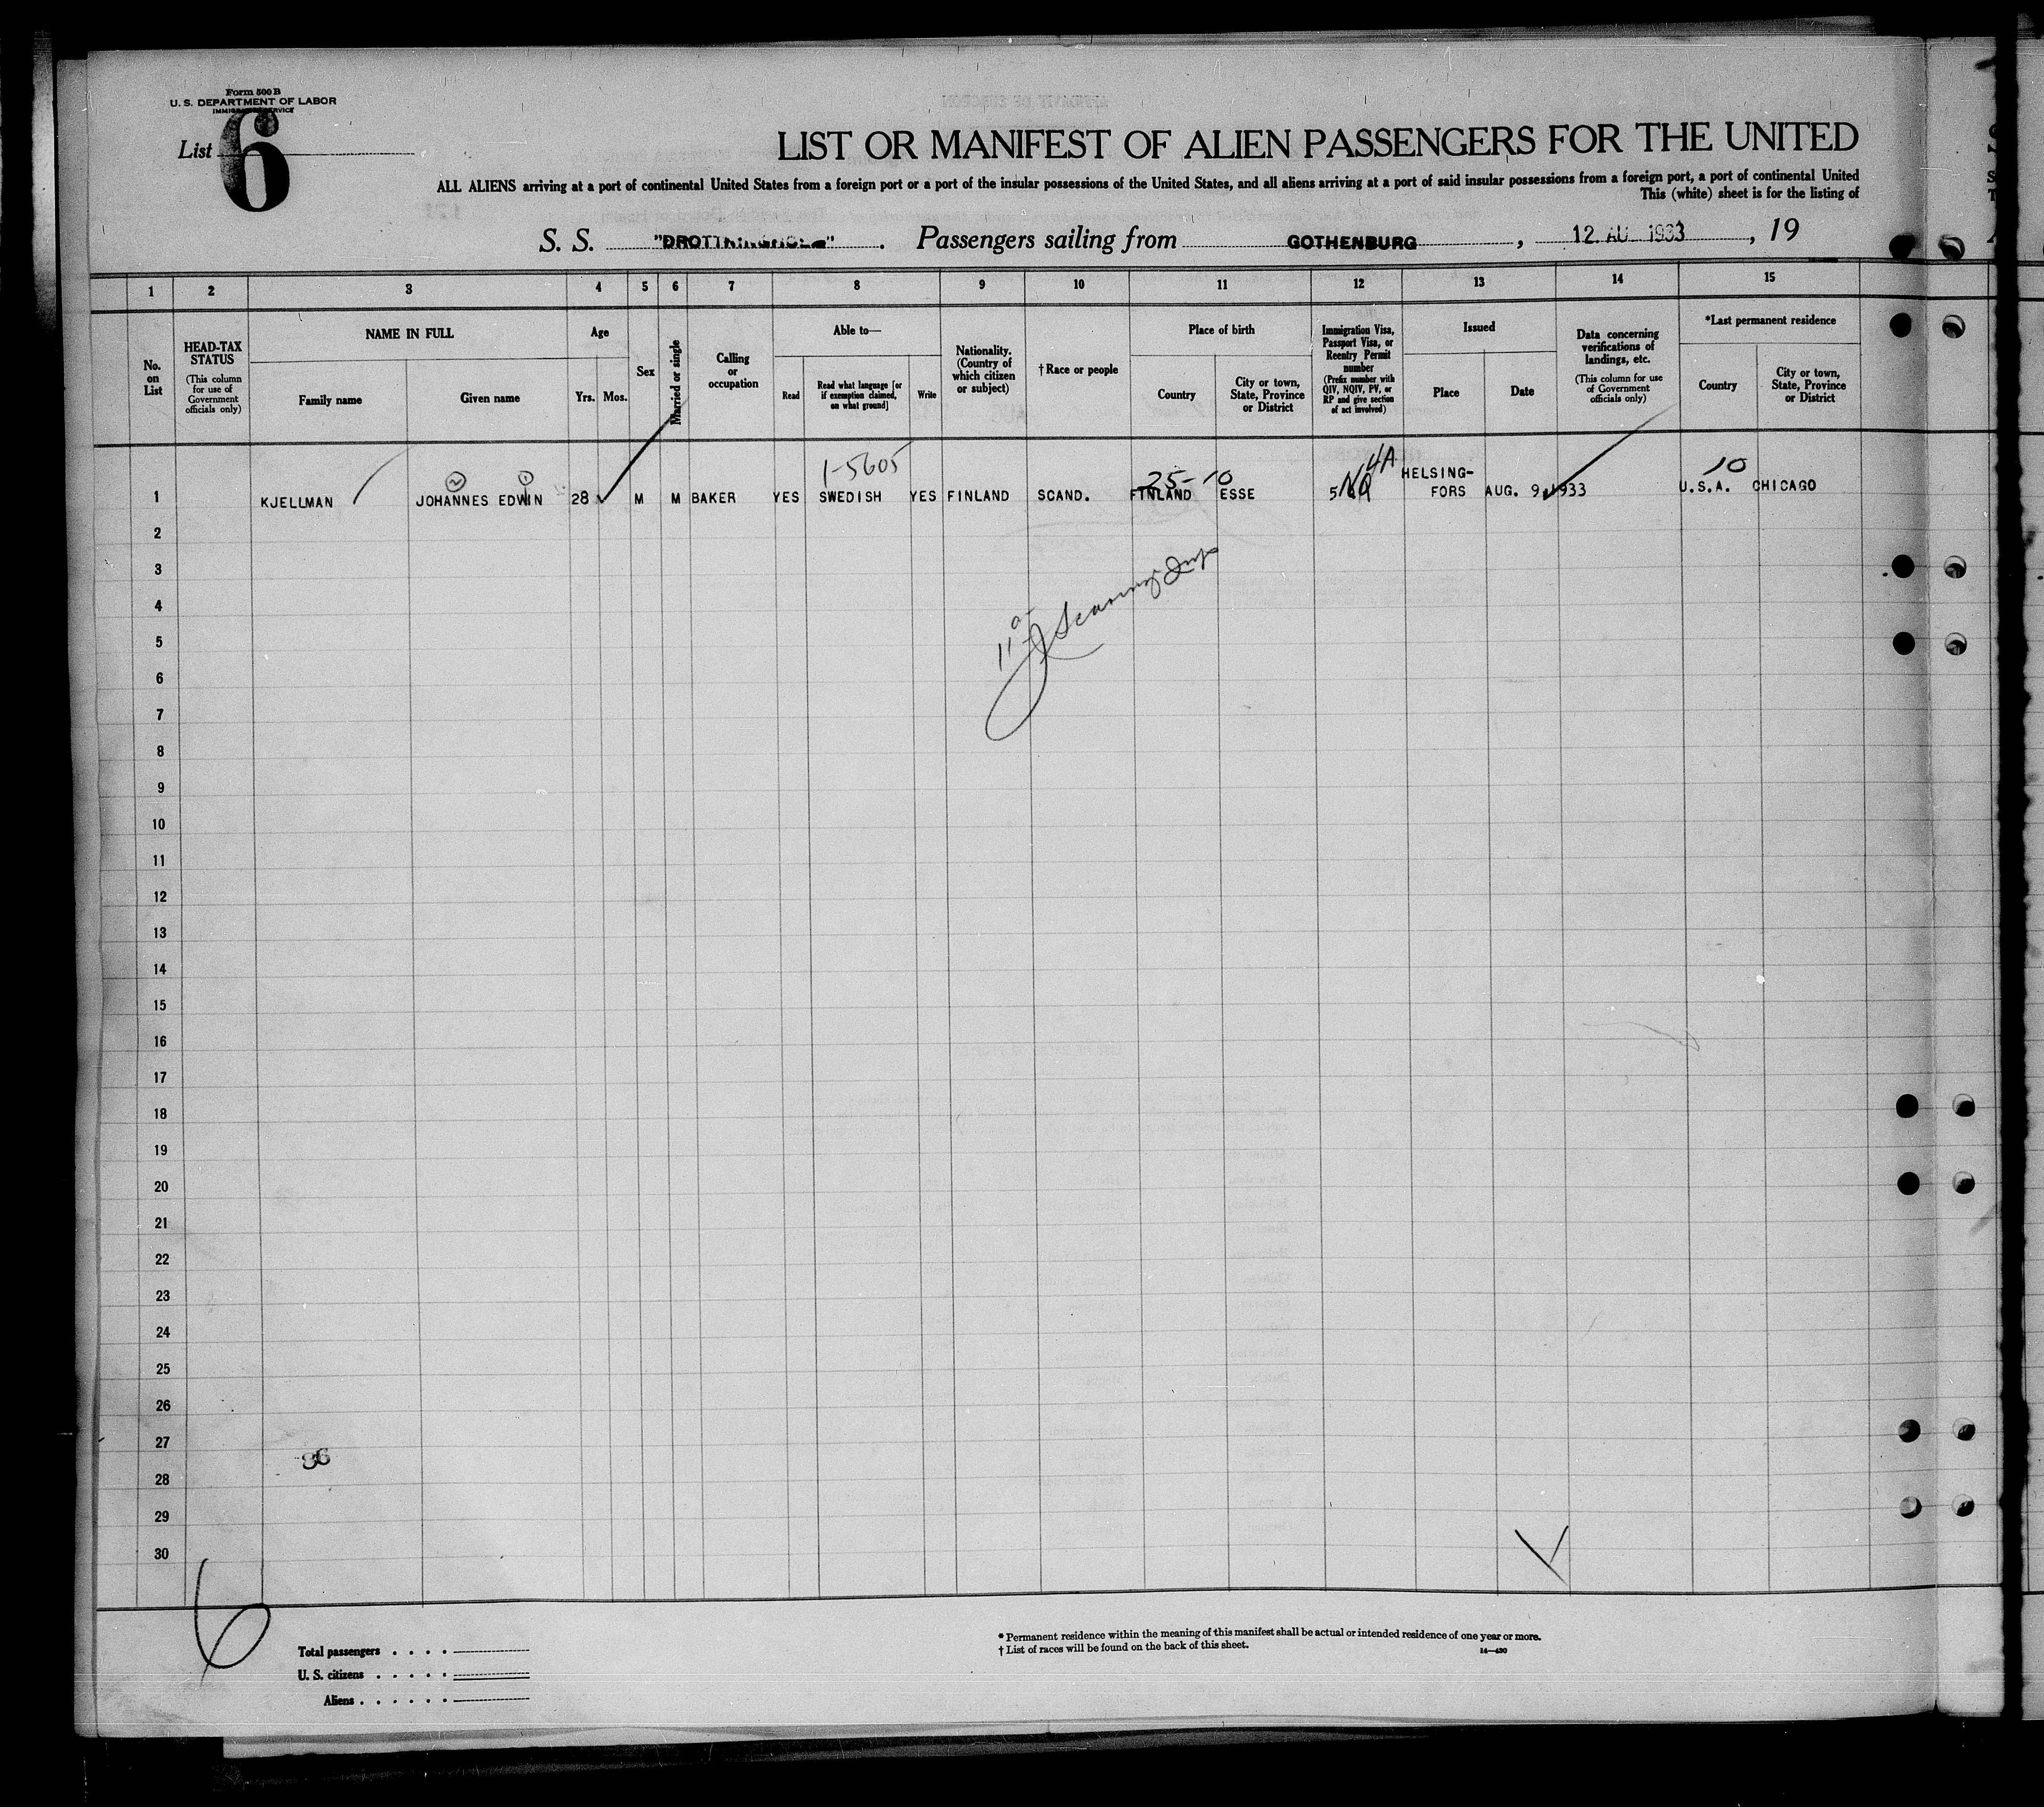 Form 500 B
U. S. DEPARTMENT OF LABOR
IMMIGRATION SERVICE
List 6
LIST OR MANIFEST OF ALIEN PASSENGERS FOR THE UNITED
ALL ALIENS arriving at a port of continental United States from a foreign port or a port of the insular possessions of the United States, and all aliens arriving at a port of said insular possessions from a foreign port, a port of continental United
This (white) sheet is for the listing of
S. S. "DROTTNINGHOLM" . Passengers sailing from GOTHENBURG , 12. AU 1933 , 19
1 2 3 4 5 6 7 8 9 10 11 12 13 14 15
No. on List
HEAD-TAX STATUS
(This column for use of Government officials only)
NAME IN FULL
Family name
Given name
Age
Yrs.
Mos.
Sex
Married or single
Calling or occupation
Able to—
Read
Read what language [or if exemption claimed, on what ground]
Write
Nationality. (Country of which citizen or subject)
† Race or people
Place of birth
Country
City or town, State, Province or District
Immigration Visa, Passport Visa, or Reentry Permit number
(Prefix number with QIV, NQIV, PV, or RP and give section of act involved)
Issued
Place
Date
Data concerning verifications of landings, etc.
(This column for use of Government officials only)
*Last permanent residence
Country
City or town, State, Province or District
1-5605
25-10
4A
10
1 KJELLMAN JOHANNES EDWIN 28 M M BAKER YES SWEDISH YES FINLAND SCAND. FINLAND ESSE HELSING-FORS AUG. 9. 1933 U.S.A. CHICAGO
2
3
4
5
6
7
8
9
10
11
12
13
14
15
16
17
18
19
20
21
22
23
24
25
26
27
86
28
29
30
6
Total passengers
U. S. citizens
Aliens
* Permanent residence within the meaning of this manifest shall be actual or intended residence of one year or more.
† List of races will be found on the back of this sheet.
14—430